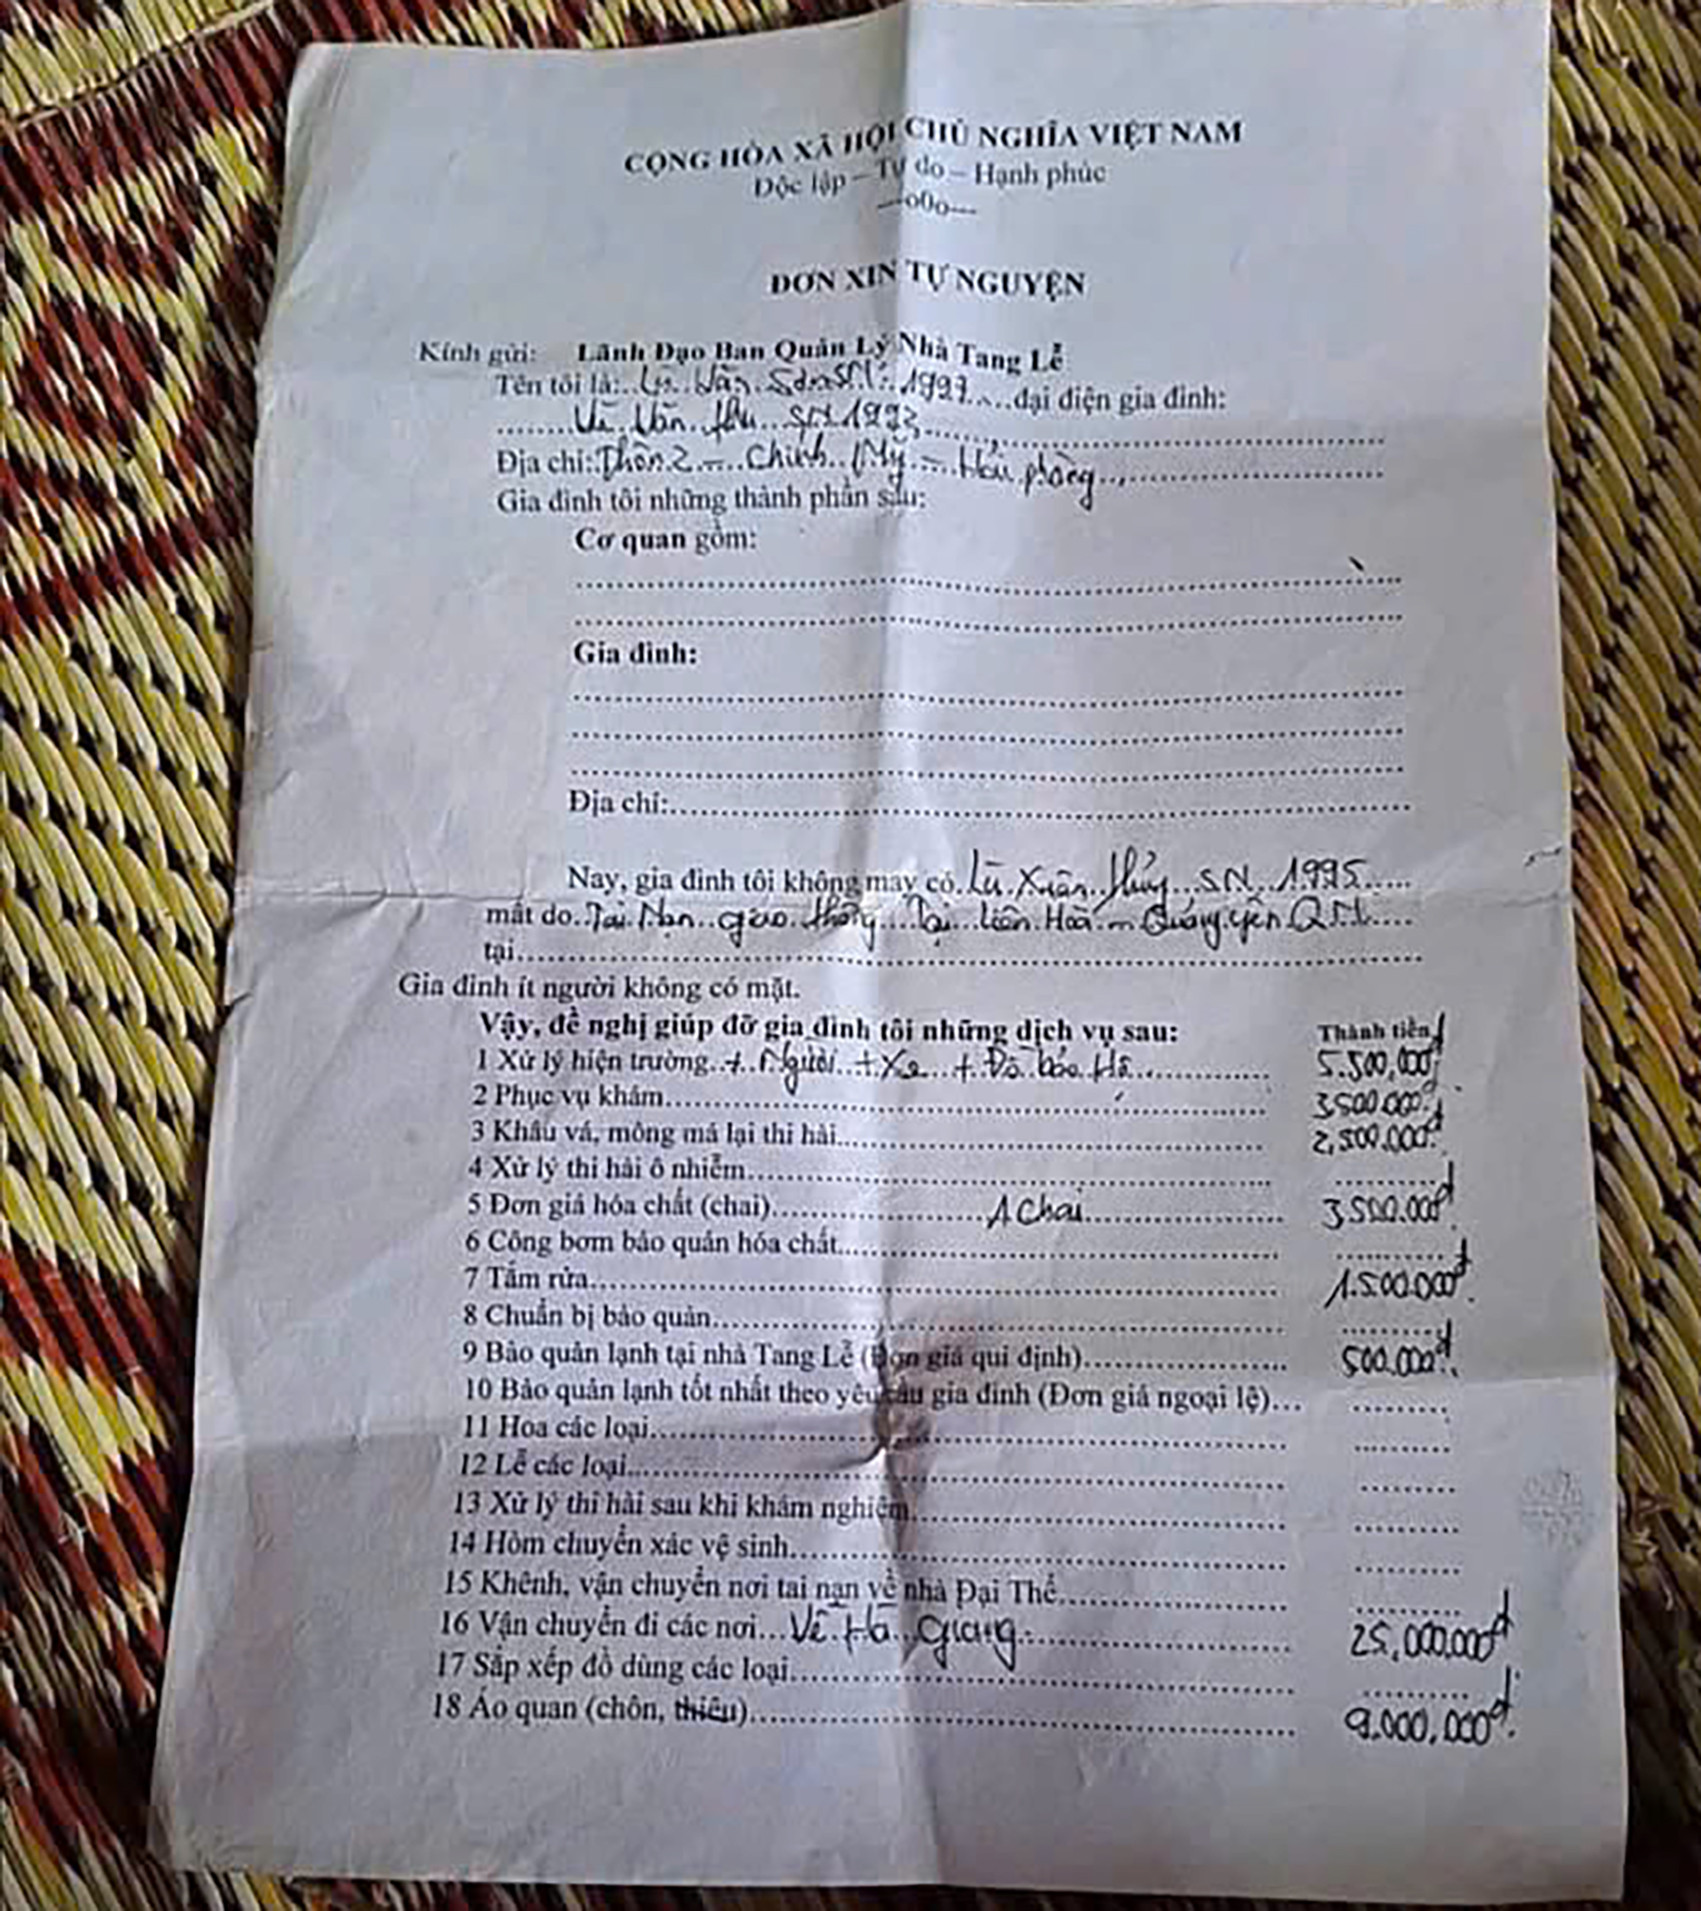 CỘNG HÒA XÃ HỘI CHỦ NGHĨA VIỆT NAM
Độc lập – Tự do – Hạnh phúc
---o0o---
ĐƠN XIN TỰ NGUYỆN
Kính gửi: Lãnh Đạo Ban Quản Lý Nhà Tang Lễ
Tên tôi là: Văn SN: 1997 đại diện gia đình:
Văn SN 1993
Địa chỉ: Thôn 2 – Chính Mỹ – Hải phòng
Gia đình tôi những thành phần sau:
Cơ quan gồm:
Gia đình:
Địa chỉ:
Nay, gia đình tôi không may có Lù Xuân Thủy SN 1995
mất do Tai Nạn giao thông Tại Liên Hoà – Quảng yên QN
tại
Gia đình ít người không có mặt.
Vậy, đề nghị giúp đỡ gia đình tôi những dịch vụ sau: Thành tiền
1 Xử lý hiện trường + Người + Xe + Đồ bảo Hộ 5.500,000đ
2 Phục vụ khám 3,500.000đ
3 Khâu vá, mông má lại thi hài 2,500.000đ
4 Xử lý thi hài ô nhiễm
5 Đơn giá hóa chất (chai) 1 chai 3.500.000đ
6 Công bơm bảo quản hóa chất
7 Tắm rửa 1.500.000đ
8 Chuẩn bị bảo quản
9 Bảo quản lạnh tại nhà Tang Lễ (Đơn giá qui định) 500.000đ
10 Bảo quản lạnh tốt nhất theo yêu cầu gia đình (Đơn giá ngoại lệ)
11 Hoa các loại
12 Lễ các loại
13 Xử lý thi hài sau khi khám nghiệm
14 Hòm chuyển xác vệ sinh
15 Khênh, vận chuyển nơi tai nạn về nhà Đại Thể
16 Vận chuyển đi các nơi Về Hà Giang 25,000.000đ
17 Sắp xếp đồ dùng các loại
18 Áo quan (chôn, thiêu) 9.000,000đ